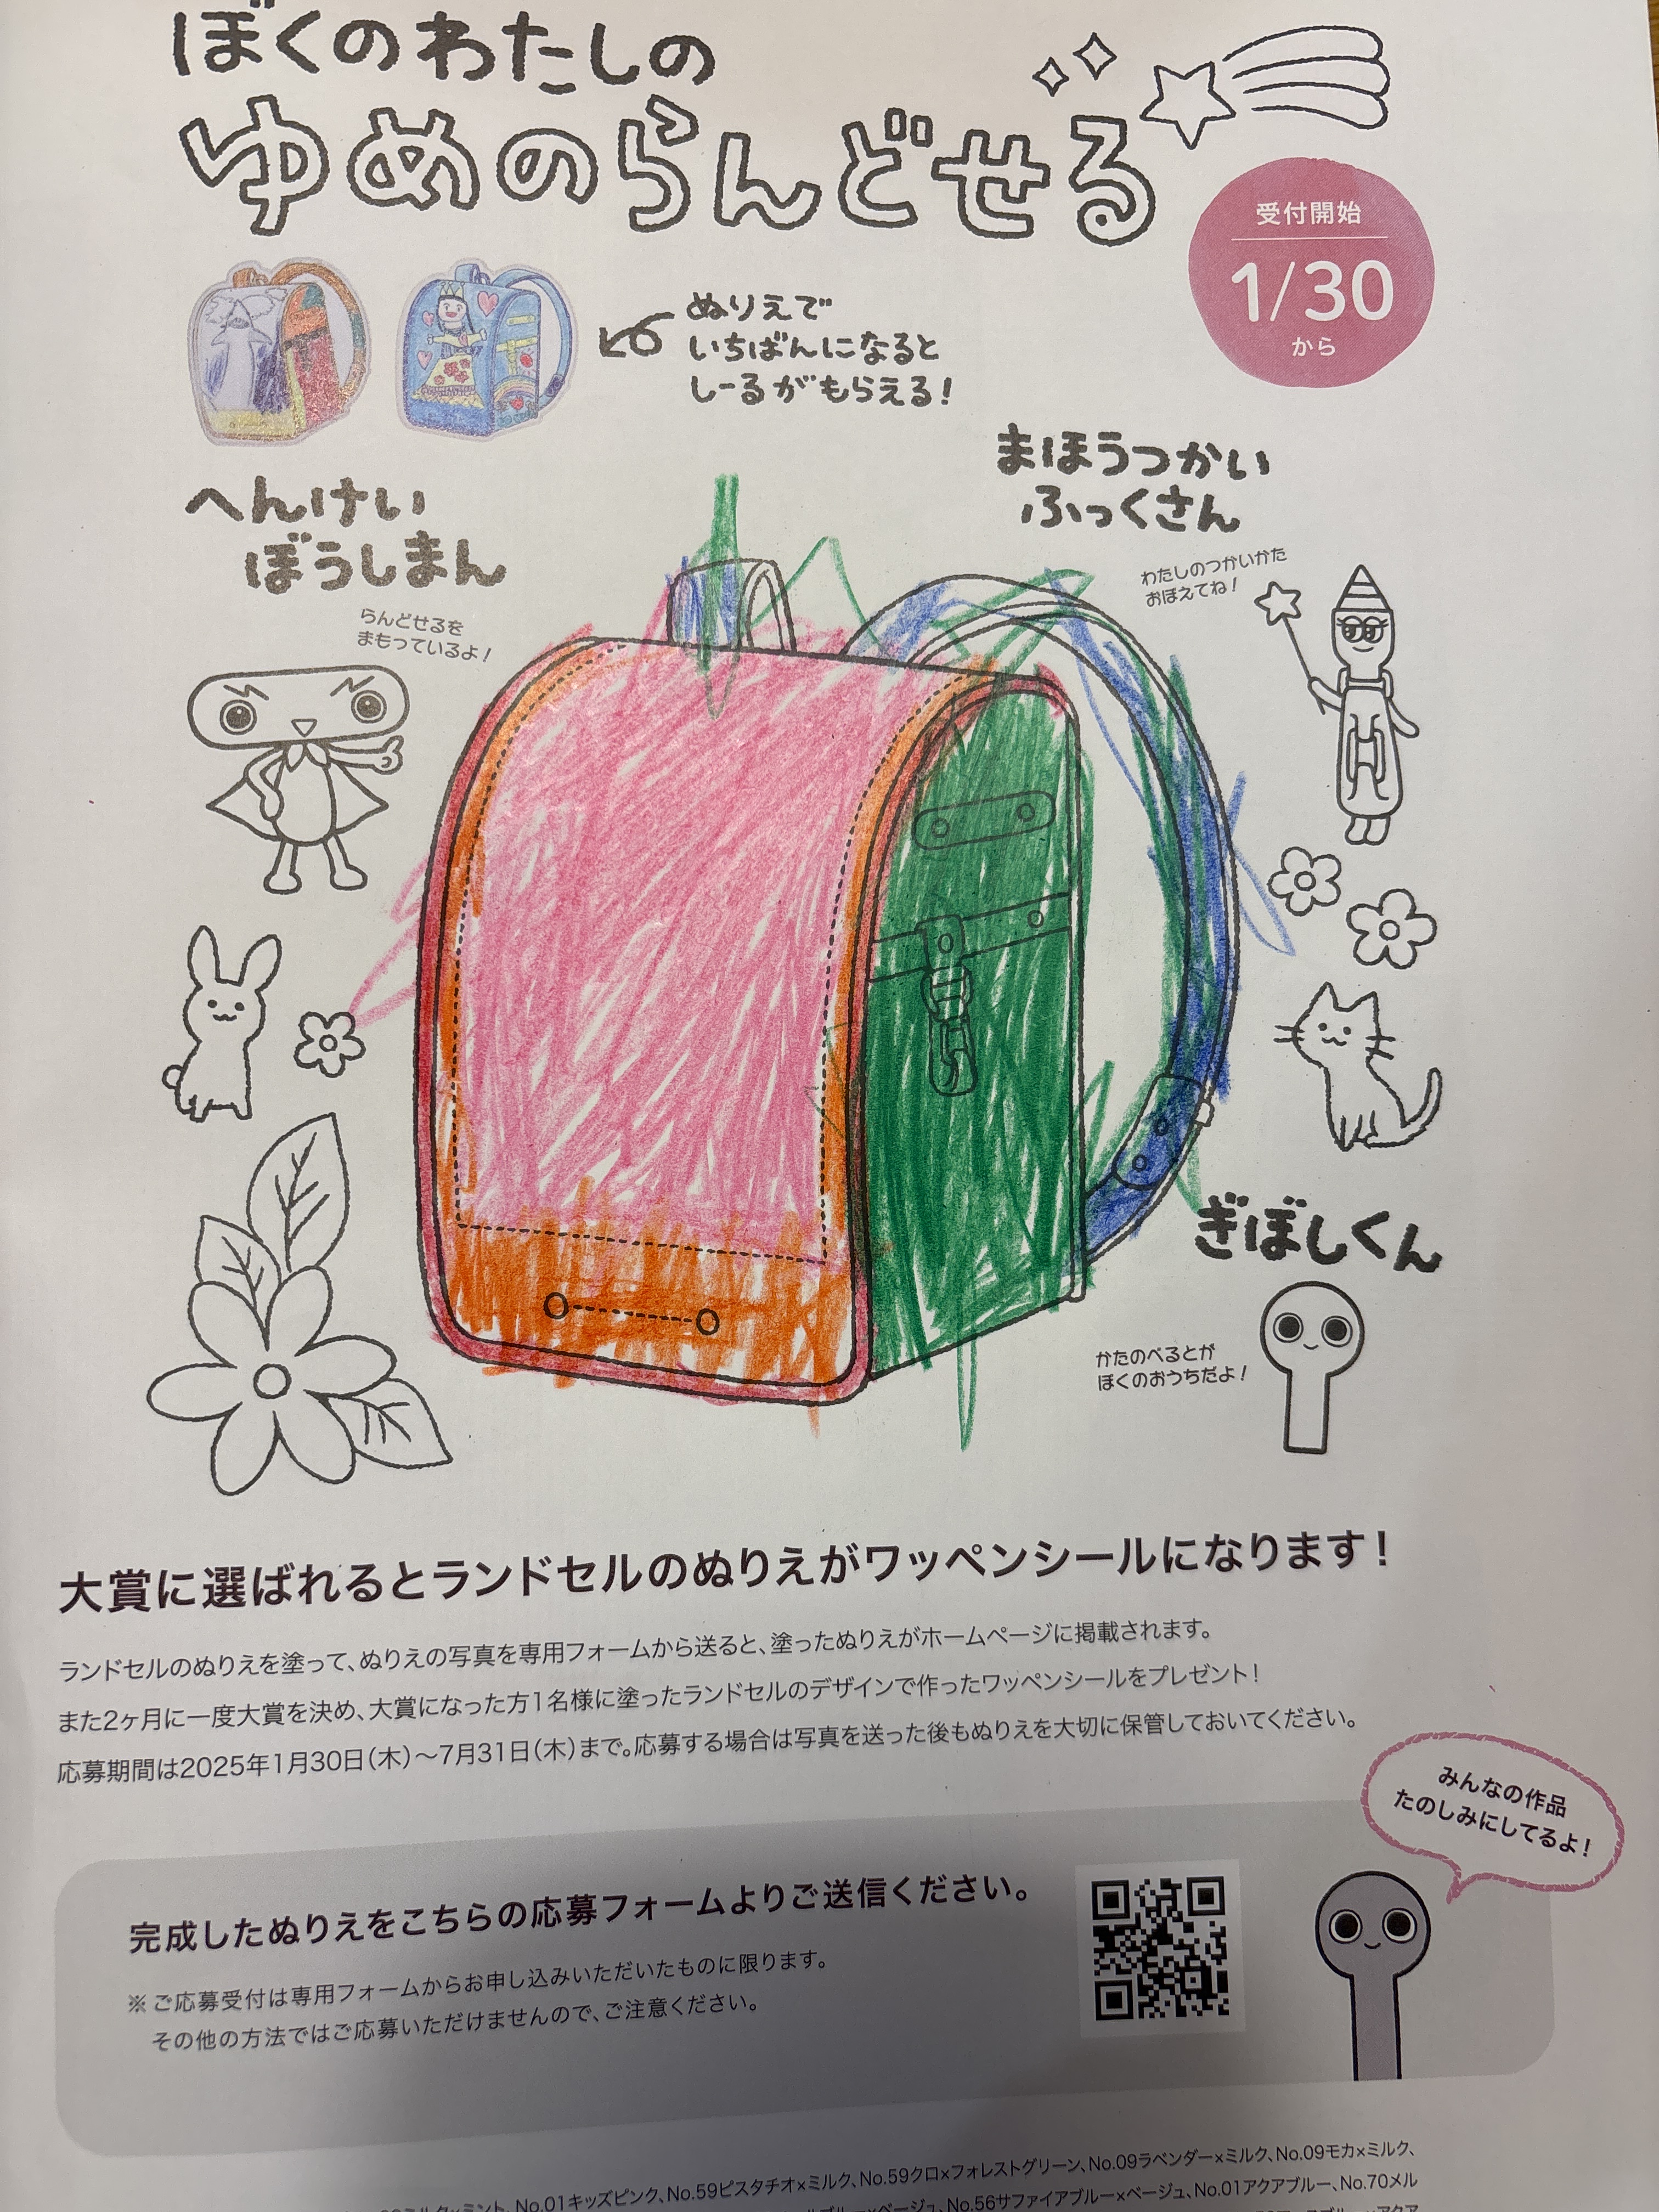 ぼくのわたしの
ゆめのらんどせる
受付開始
1/30
から
ぬりえで
いちばんになると
しーるがもらえる!
へんけい
ぼうしまん
らんどせるを
まもっているよ!
まほうつかい
ふっくさん
わたしのつかいかた
おぼえてね!
ぎぼしくん
かたのべるとが
ぼくのおうちだよ!
大賞に選ばれるとランドセルのぬりえがワッペンシールになります!
ランドセルのぬりえを塗って、ぬりえの写真を専用フォームから送ると、塗ったぬりえがホームページに掲載されます。
また2ヶ月に一度大賞を決め、大賞になった方1名様に塗ったランドセルのデザインで作ったワッペンシールをプレゼント!
応募期間は2025年1月30日(木)〜7月31日(木)まで。応募する場合は写真を送った後もぬりえを大切に保管しておいてください。
みんなの作品
たのしみにしてるよ!
完成したぬりえをこちらの応募フォームよりご送信ください。
※ご応募受付は専用フォームからお申し込みいただいたものに限ります。
その他の方法ではご応募いただけませんので、ご注意ください。
ミルク×ミント、No.01キッズピンク、No.59ピスタチオ×ミルク、No.59クロ×フォレストグリーン、No.09ラベンダー×ミルク、No.09モカ×ミルク、
ルブルー×ベージュ、No.56サファイアブルー×ベージュ、No.01アクアブルー、No.70メル